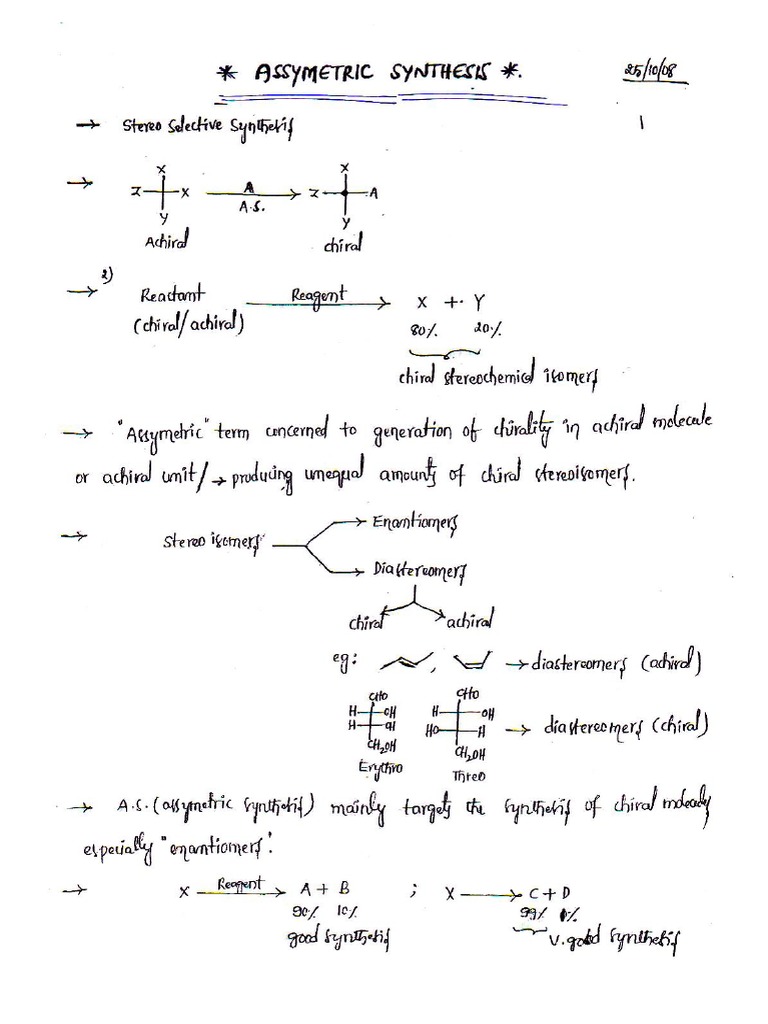 * ASSYMETRIC SYNTHESIS *.
25/10/08
1
→ Stereo Selective Synthesis
→ X Z X Y Achiral A A.S. → X Z A Y chiral
→ 2) Reactant (chiral/achiral) Reagent → X + Y
80% 20%
chiral stereochemical isomers
→ "Assymetric" term concerned to generation of chirality in achiral molecule
or achiral unit/→ producing unequal amounts of chiral stereoisomers.
→ Stereo isomers → Enantiomers
→ Diastereomers
chiral achiral
eg: , → diastereomers (achiral)
CHO CHO
H OH H OH
H OH HO H → diastereomers (chiral)
CH2OH CH2OH
Erythro Threo
→ A.S. (assymetric synthesis) mainly targets the synthesis of chiral
especially "enantiomers".
→ X Reagent → A + B ; X → C + D
90% 10% 99% 1%
good synthesis V. good synthesis